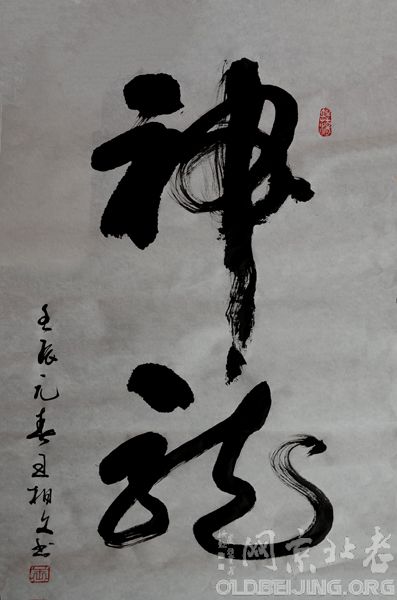 神龍
壬辰元春王相文书
网京北老
OLDBEIJING.ORG